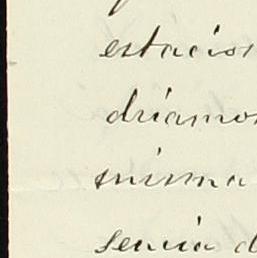 estacios
driamos
misma
sencia d